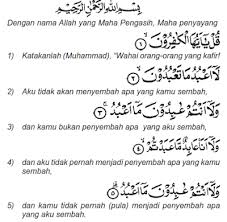 بِسْمِ اللَّهِ الرَّحْمَٰنِ الرَّحِيمِ
Dengan nama Allah yang Maha Pengasih, Maha penyayang
قُلْ يٰٓاَيُّهَا الْكٰفِرُوْنَۙ ١
1) Katakanlah (Muhammad), “Wahai orang-orang yang kafir!
لَآ اَعْبُدُ مَا تَعْبُدُوْنَۙ ٢
2) Aku tidak akan menyembah apa yang kamu sembah,
وَلَآ اَنْتُمْ عٰبِدُوْنَ مَآ اَعْبُدُۚ ٣
3) dan kamu bukan penyembah apa yang aku sembah,
وَلَآ اَنَا۠ عَابِدٌ مَّا عَبَدْتُّمْۙ ٤
4) dan aku tidak pernah menjadi penyembah apa yang kamu
sembah,
وَلَآ اَنْتُمْ عٰبِدُوْنَ مَآ اَعْبُدُۗ ٥
5) dan kamu tidak pernah (pula) menjadi penyembah apa
yang aku sembah.